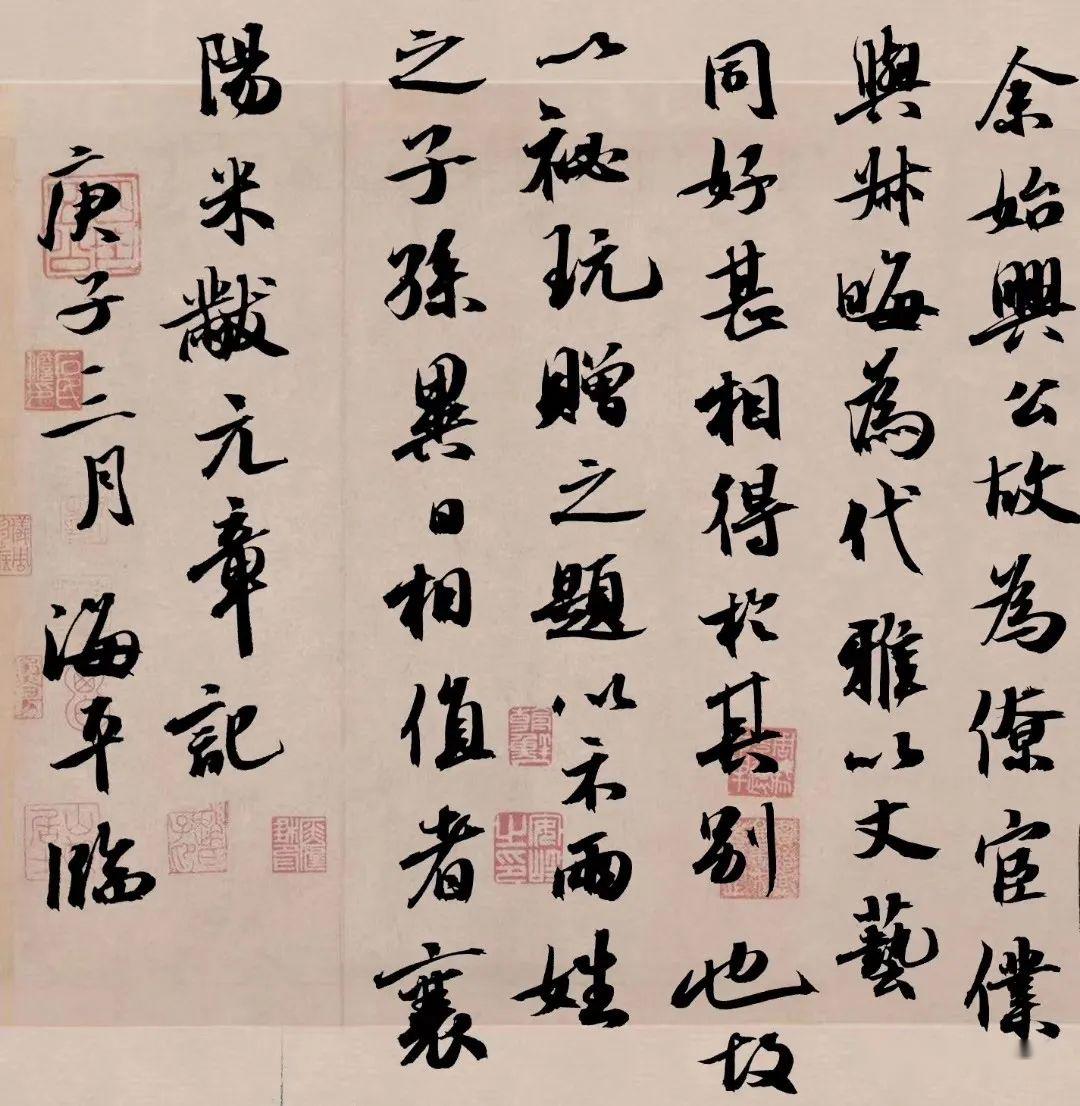 余始興公故為僚宦僕
與叔晦為代雅以文藝
同好甚相得於其別也故
以祕玩贈之題以示兩姓
之子孫異日相值者襄
陽米黻元章記
庚子三月 海平臨